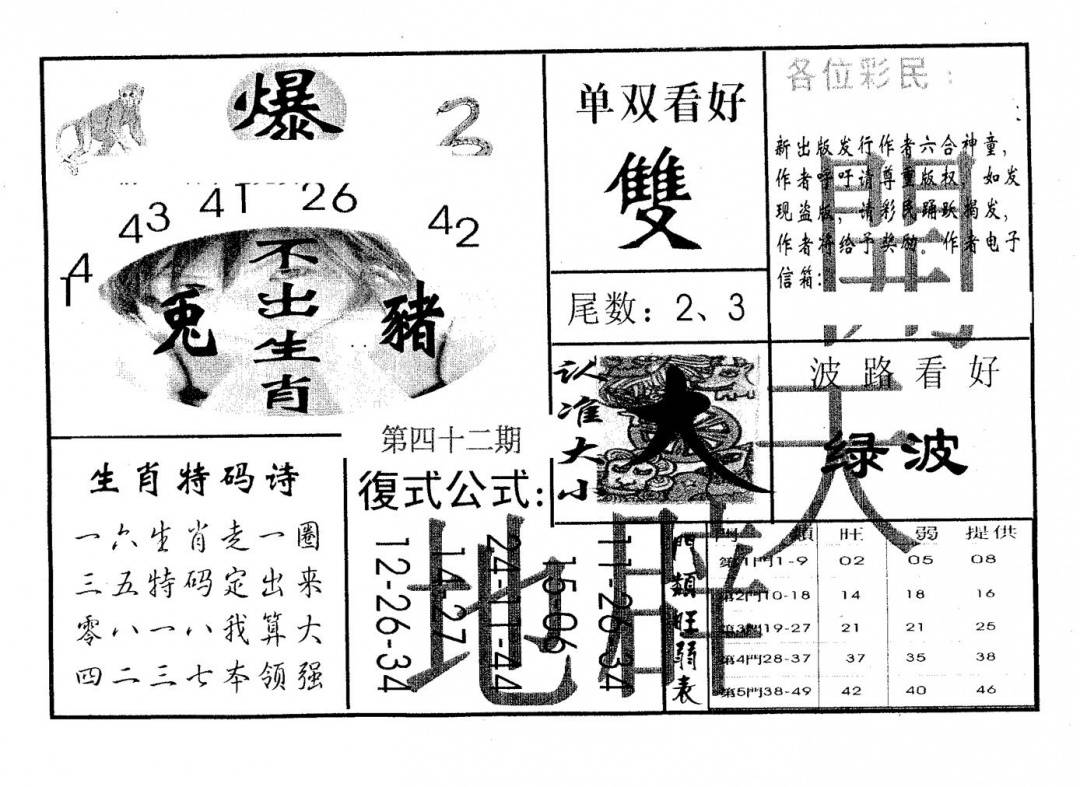 爆
14 43 41 26 42
不出生肖
兔
豬
单双看好
雙
尾数：2、3
各位彩民：
新出版发行作者六合神童，
作者呼吁请尊重版权，如发
现盗版，请彩民踊跃揭发，
作者将给予奖励。作者电子
信箱：
认准大小
大
波路看好
绿波
生肖特码诗
一六生肖走一圈
三五特码定出来
零八一八我算大
四二三七本领强
第四十二期
復式公式：
12-26-34
14-27
24-11-44
15-06
11-26-34
地
胜
天
門類旺弱表
門 類 旺 弱 提供
第1門1-9 02 05 08
第2門10-18 14 18 16
第3門19-27 21 21 25
第4門28-37 37 35 38
第5門38-49 42 40 46